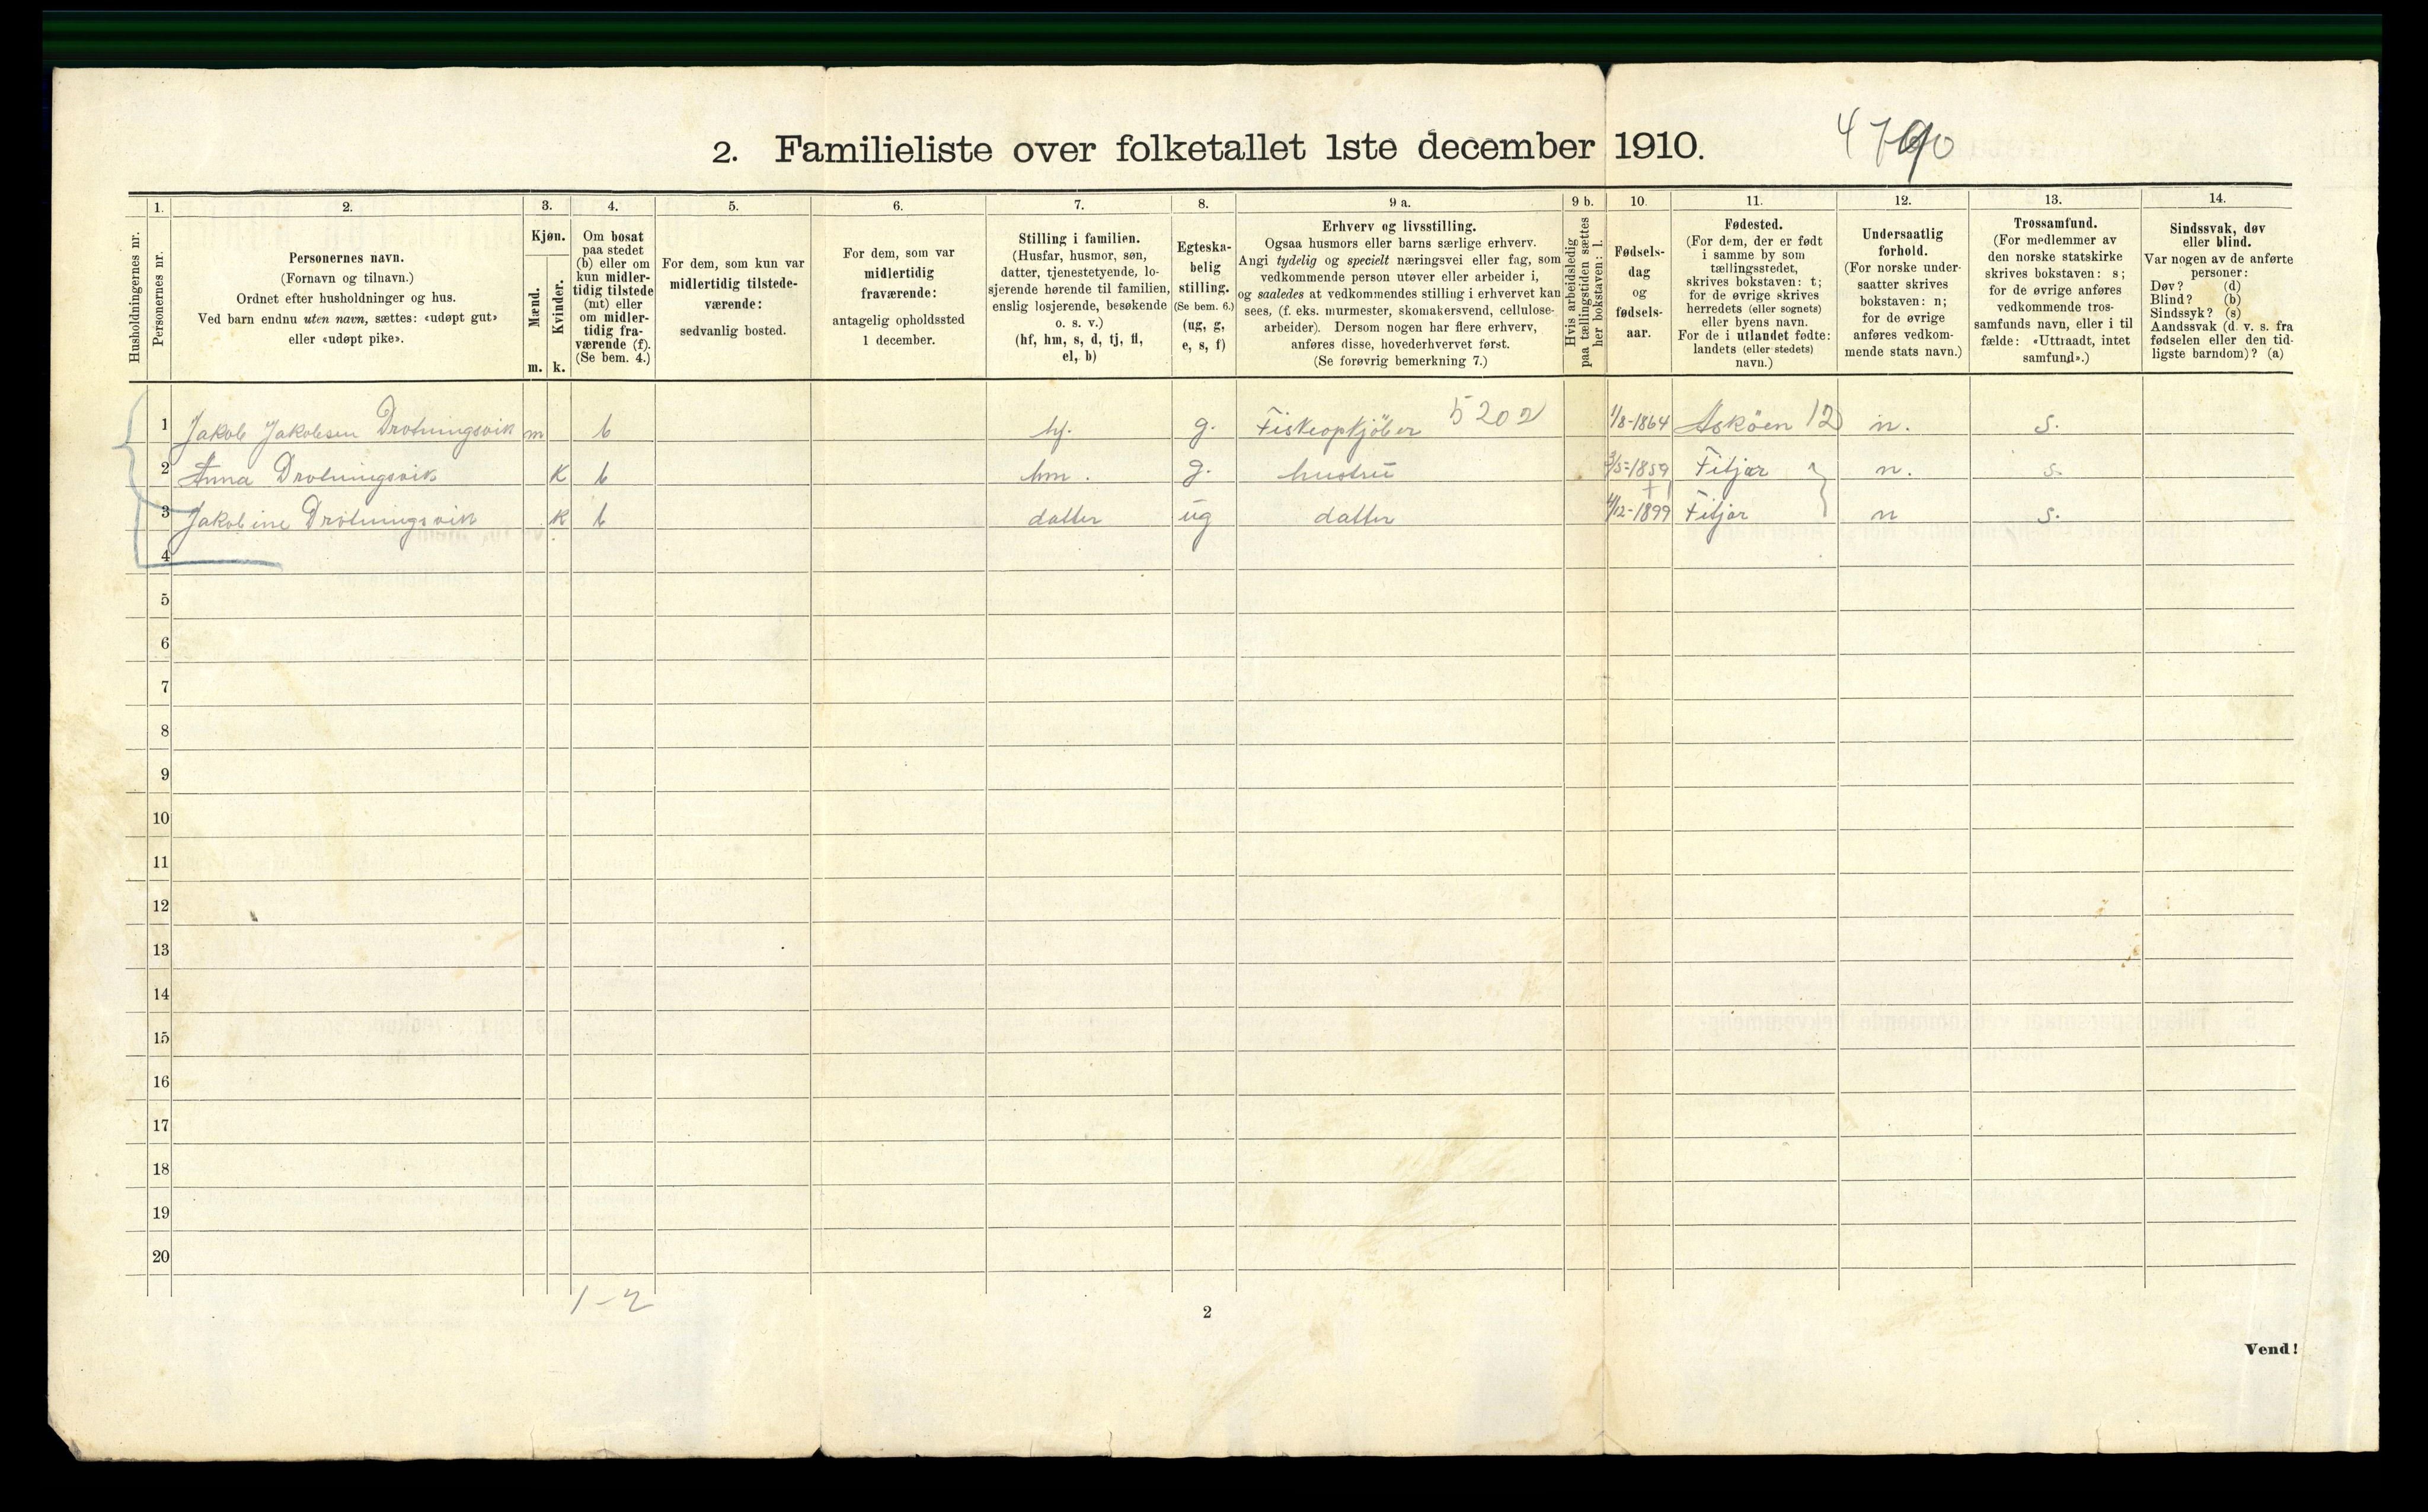 2. Familieliste over folketallet 1ste december 1910.
Husholdningernes nr.
1.
Personernes nr.
2.
Personernes navn.
(Fornavn og tilnavn.)
Ordnet efter husholdninger og hus.
Ved barn endnu uten navn, sættes: «udøpt gut»
eller «udøpt pike».
3.
Kjøn.
Mænd.
Kvinder.
m. k.
4.
Om bosat
paa stedet
(b) eller om
kun midler-
tidig tilstede
(mt) eller
om midler-
tidig fra-
værende (f).
(Se bem. 4.)
5.
For dem, som kun var
midlertidig tilstede-
værende:
sedvanlig bosted.
6.
For dem, som var
midlertidig
fraværende:
antagelig opholdssted
1 december.
7.
Stilling i familien.
(Husfar, husmor, søn,
datter, tjenestetyende, lo-
sjerende hørende til familien,
enslig losjerende, besøkende
o. s. v.)
(hf, hm, s, d, tj, fl,
el, b)
8.
Egteska-
belig
stilling.
(Se bem. 6.)
(ug, g,
e, s, f)
9 a.
Erhverv og livsstilling.
Ogsaa husmors eller barns særlige erhverv.
Angi tydelig og specielt næringsvei eller fag, som
vedkommende person utøver eller arbeider i,
og saaledes at vedkommendes stilling i erhvervet kan
sees, (f. eks. murmester, skomakersvend, cellulose-
arbeider). Dersom nogen har flere erhverv,
anføres disse, hovederhvervet først.
(Se forøvrig bemerkning 7.)
9 b.
Hvis arbeidsledig
paa tællingstiden sættes
her bokstaven: l.
10.
Fødsels-
dag
og
fødsels-
aar.
11.
Fødested.
(For dem, der er født
i samme by som
tællingsstedet,
skrives bokstaven: t;
for de øvrige skrives
herredets (eller sognets)
eller byens navn.
For de i utlandet fødte:
landets (eller stedets)
navn.)
12.
Undersaatlig
forhold.
(For norske under-
saatter skrives
bokstaven: n;
for de øvrige
anføres vedkom-
mende stats navn.)
13.
Trossamfund.
(For medlemmer av
den norske statskirke
skrives bokstaven: s;
for de øvrige anføres
vedkommende tros-
samfunds navn, eller i til
fælde: «Uttraadt, intet
samfund».)
14.
Sindssvak, døv
eller blind.
Var nogen av de anførte
personer:
Døv? (d)
Blind? (b)
Sindssyk? (s)
Aandssvak (d. v. s. fra
fødselen eller den tid-
ligste barndom)? (a)
1 Jakob Jakobsen Drotningsvik m b hf. g. Fiskeopkjöber 5202 1/8-1864 Asköen 12 n. s.
2 Anna Drotningsvik k b hm. g. hustru 3/5-1859 Fitjar n. s.
3 Jakobine Drotningsvik k b datter ug datter 4/12-1899 Fitjar n s.
4
5
6
7
8
9
10
11
12
13
14
15
16
17
18
19
20
1-2
2
Vend!